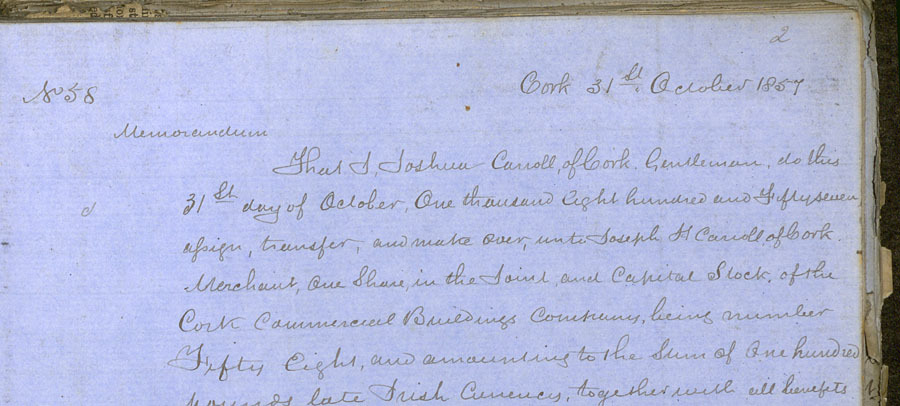 2
No 58
Cork 31st October 1857
Memorandum
That I, Joshua Carroll, of Cork. Gentleman, do this
31st day of October, One thousand Eight hundred and Fifty seven
assign, transfer, and make over, unto Joseph H Carroll of Cork.
Merchant, One Share, in the Joint, and Capital Stock, of the
Cork Commercial Buildings Company, being number
Fifty Eight, and amounting to the Sum of One hundred
pounds late Irish Currency, together with all benefits